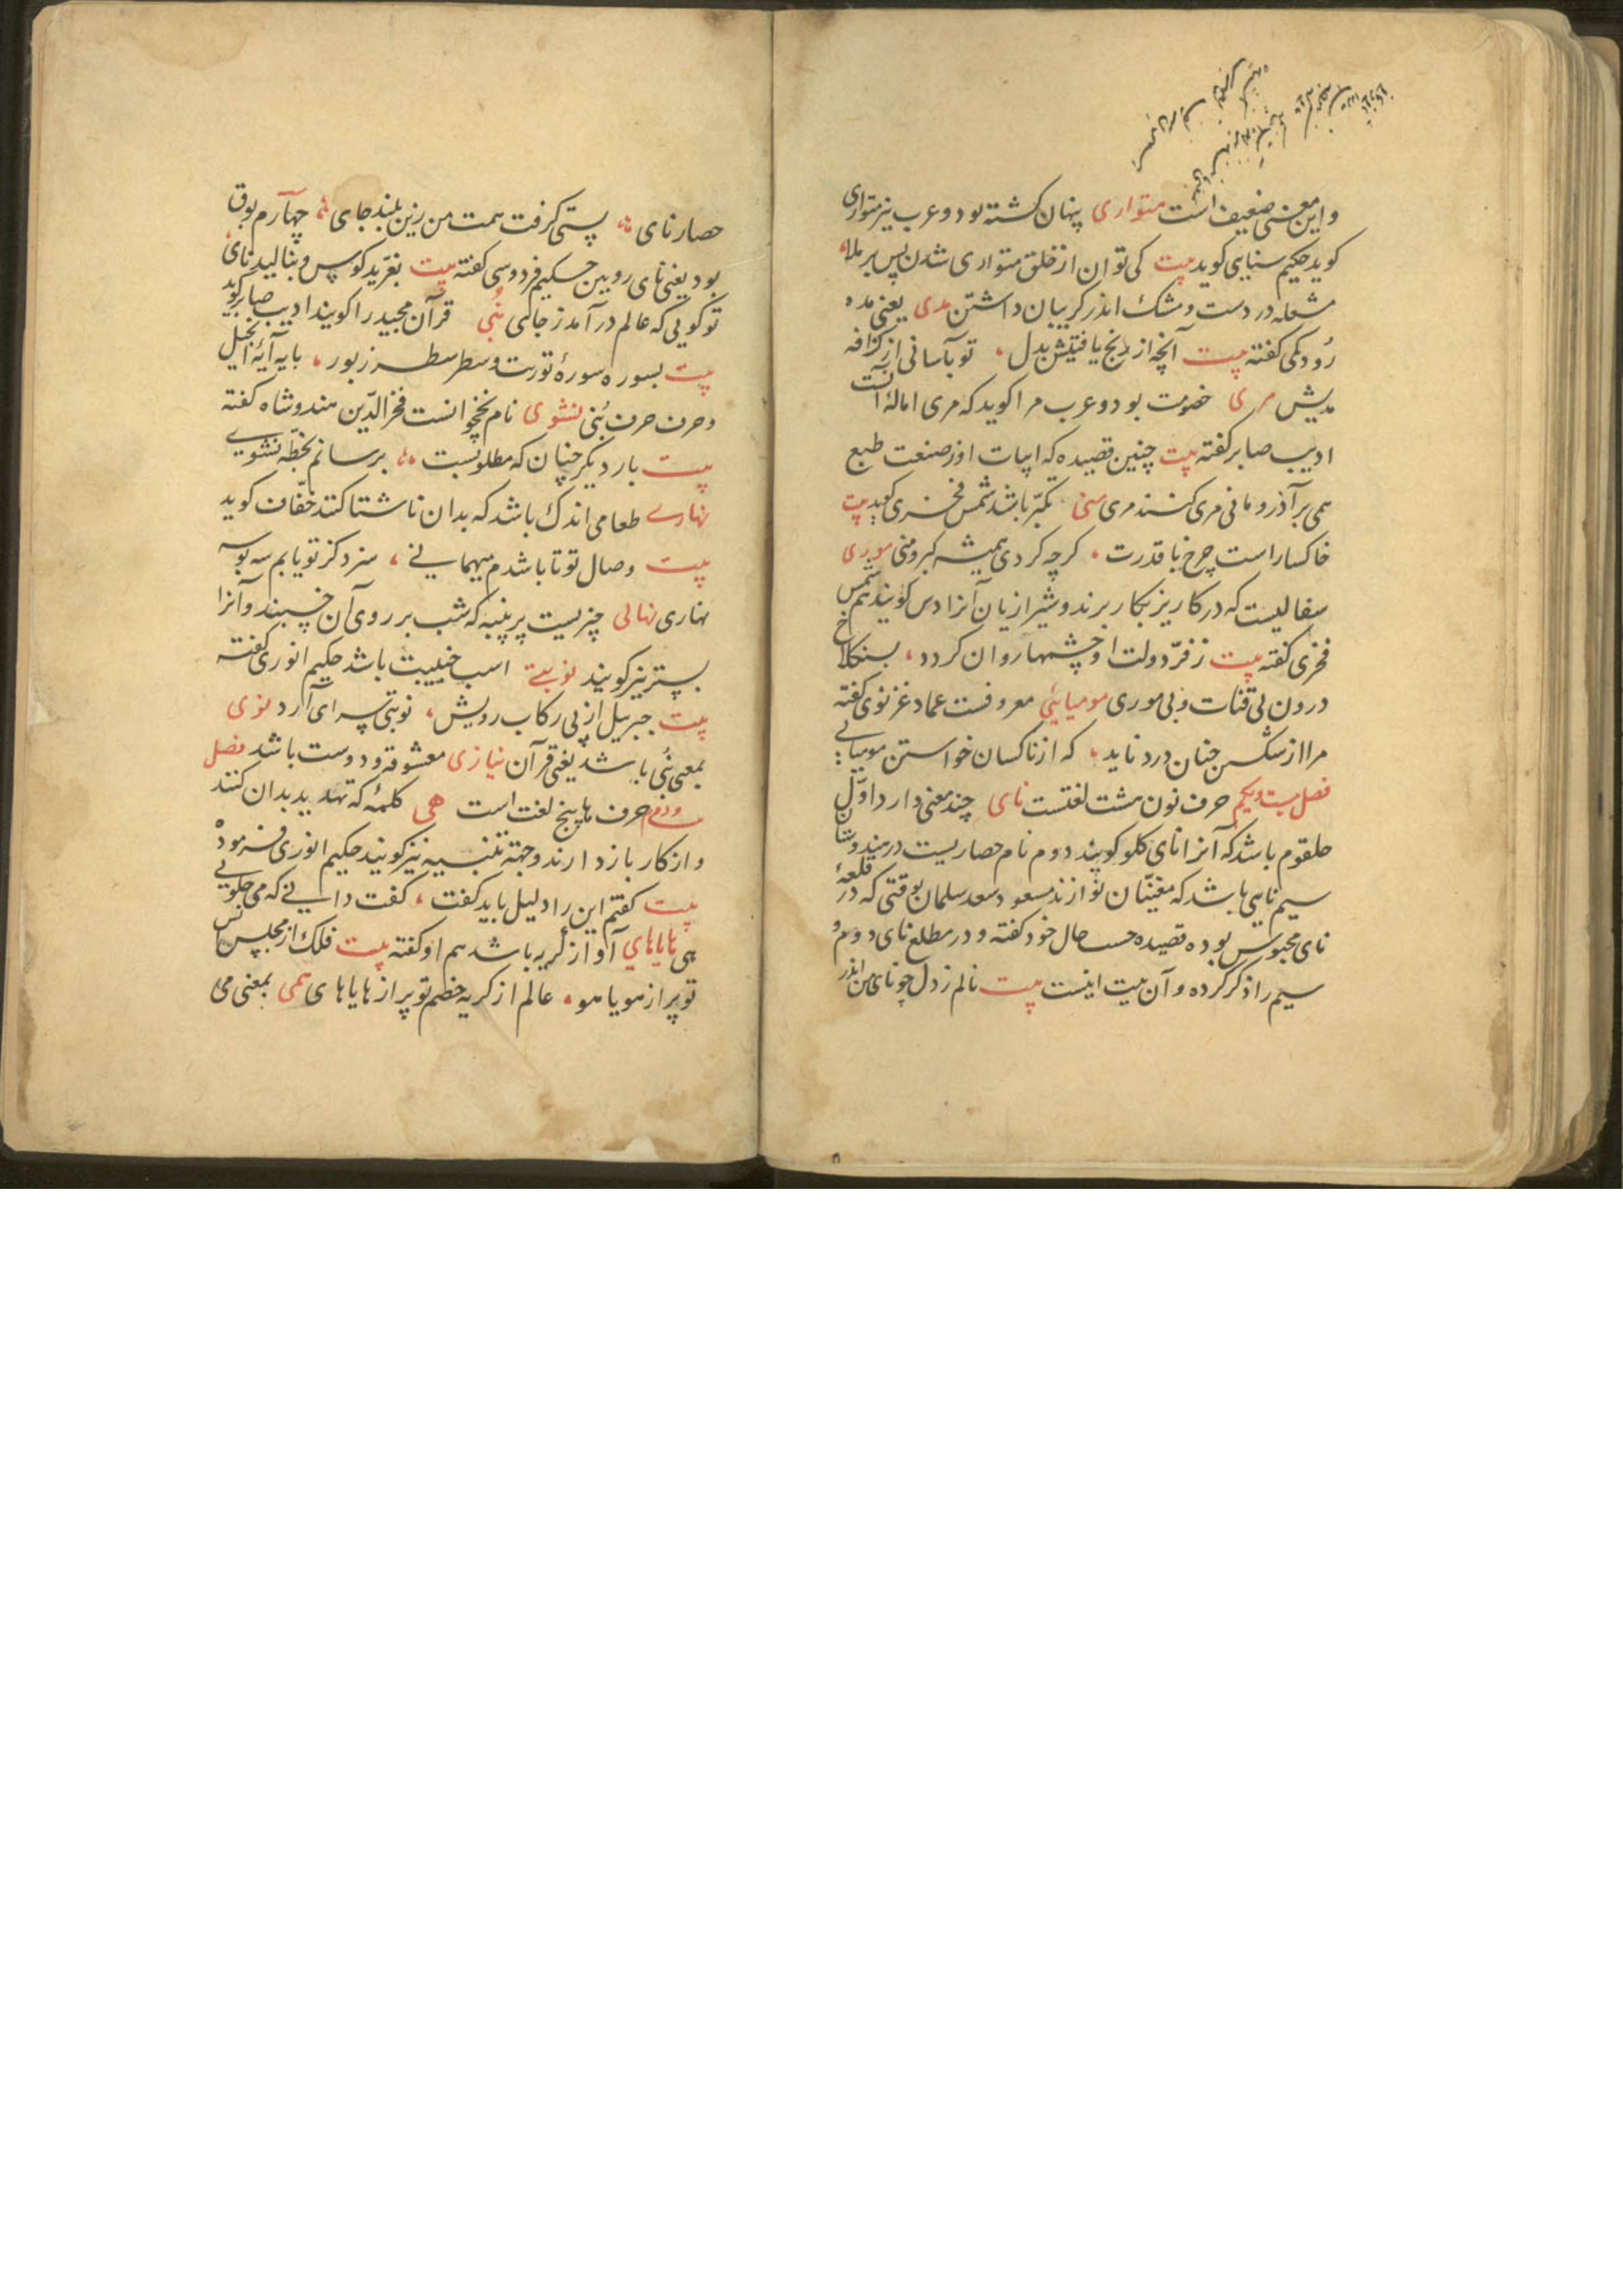 و این معنی ضعیف است متواری پنهان کشته بود و عرب نیز متواری
کوید حکیم سنایی کوید بیت کی توان از خلق متواری شدن پس بر ملا
مشعله در دست و مشک اندر کریبان داشتن مدی یعنی مده
رودکی کفته بیت آنچه از رنج یافتیش بدل تو بآسانی از کزافه
مدیش مری خصومت بود و عرب مرا کوید که مری امالهٔ آنست
ادیب صابر کفته بیت چنین قصیده که ابیات او ز صنعت طبع
همی بر آذر و مانی مری کنند مری منی تکبّر باشد شمس فخری کوید بیت
خاکسار است چرخ با قدرت کرچه کردی همیشه کبر و منی موری
سفالیست که در کاریز بکار برند و شیرازیان آنرا دس کویند هم شمس
فخری کفته بیت ز فرّ دولت او چشمها روان کردد بسنکلاخ
درون بی قنات و بی موری مومیایی معروفست عماد غزنوی کفته
مرا از شکستن چنان درد ناید که از ناکسان خواستن مومیایی
فصل بیست و یکم حرف نون هشت لغتست نای چند معنی دارد اوّل
حلقوم باشد که آنرا نای کلو کویند دوم نام حصاریست در هندوستان
سیم نایی باشد که مغنّیان نوازند مسعود سعد سلمان بوقتی که در قلعهٔ
نای محبوس بوده قصیده حسب حال خود کفته و در مطلع نای دوم و
سیم را ذکر کرده و آن بیت اینست بیت نالم ز دل چو نای من اندر
حصار نای پستی کرفت همت من زین بلند جای چهارم بوق
بود یعنی نای رویین حکیم فردوسی کفته بیت بغرّید کوس و بنالید نای
تو کویی که عالم در آمد ز جای نُبی قرآن مجید را کویند ادیب صابر کوید
بیت بسوره سورهٔ توریت و سطر سطر زبور بایه آیهٔ انجیل
و حرف حرف نُبی نشوی نام نخجوانست فخر الدّین هندوشاه کفته
بیت بار دیکر چنان که مطلوبست برسانم بخطّه نشوی
نهاری طعامی اندک باشد که بدان ناشتا کنند خفّاف کوید
بیت وصال تو تا باشدم میهمانی سزد کز تو یابم سه بوسه
نهاری نهالی چیزیست پر پنبه که شب بر روی آن خسبند و آنرا
بستر نیز کویند نوبتی اسب جنیبت باشد حکیم انوری کفته
بیت جبریل از پی رکاب رویش نوبتی سرای آرد نوی
بمعنی نُبی باشد یعنی قرآن نیازی معشوقه و دوست باشد فصل
حرف ها پنج لغت است هی کلمهٔ که تهدید بدان کنند
و از کار باز دارند و جهة تنبیه نیز کویند حکیم انوری فرموده
بیت کفتم این را دلیل باید کفت کفت دانی که می چکویی
هی هایاهای آواز کریه باشد هم او کفته بیت فلک از مجلس انس
تو پر از هویاهو عالم از کریه خصم تو پر از هایاهای همی بمعنی می